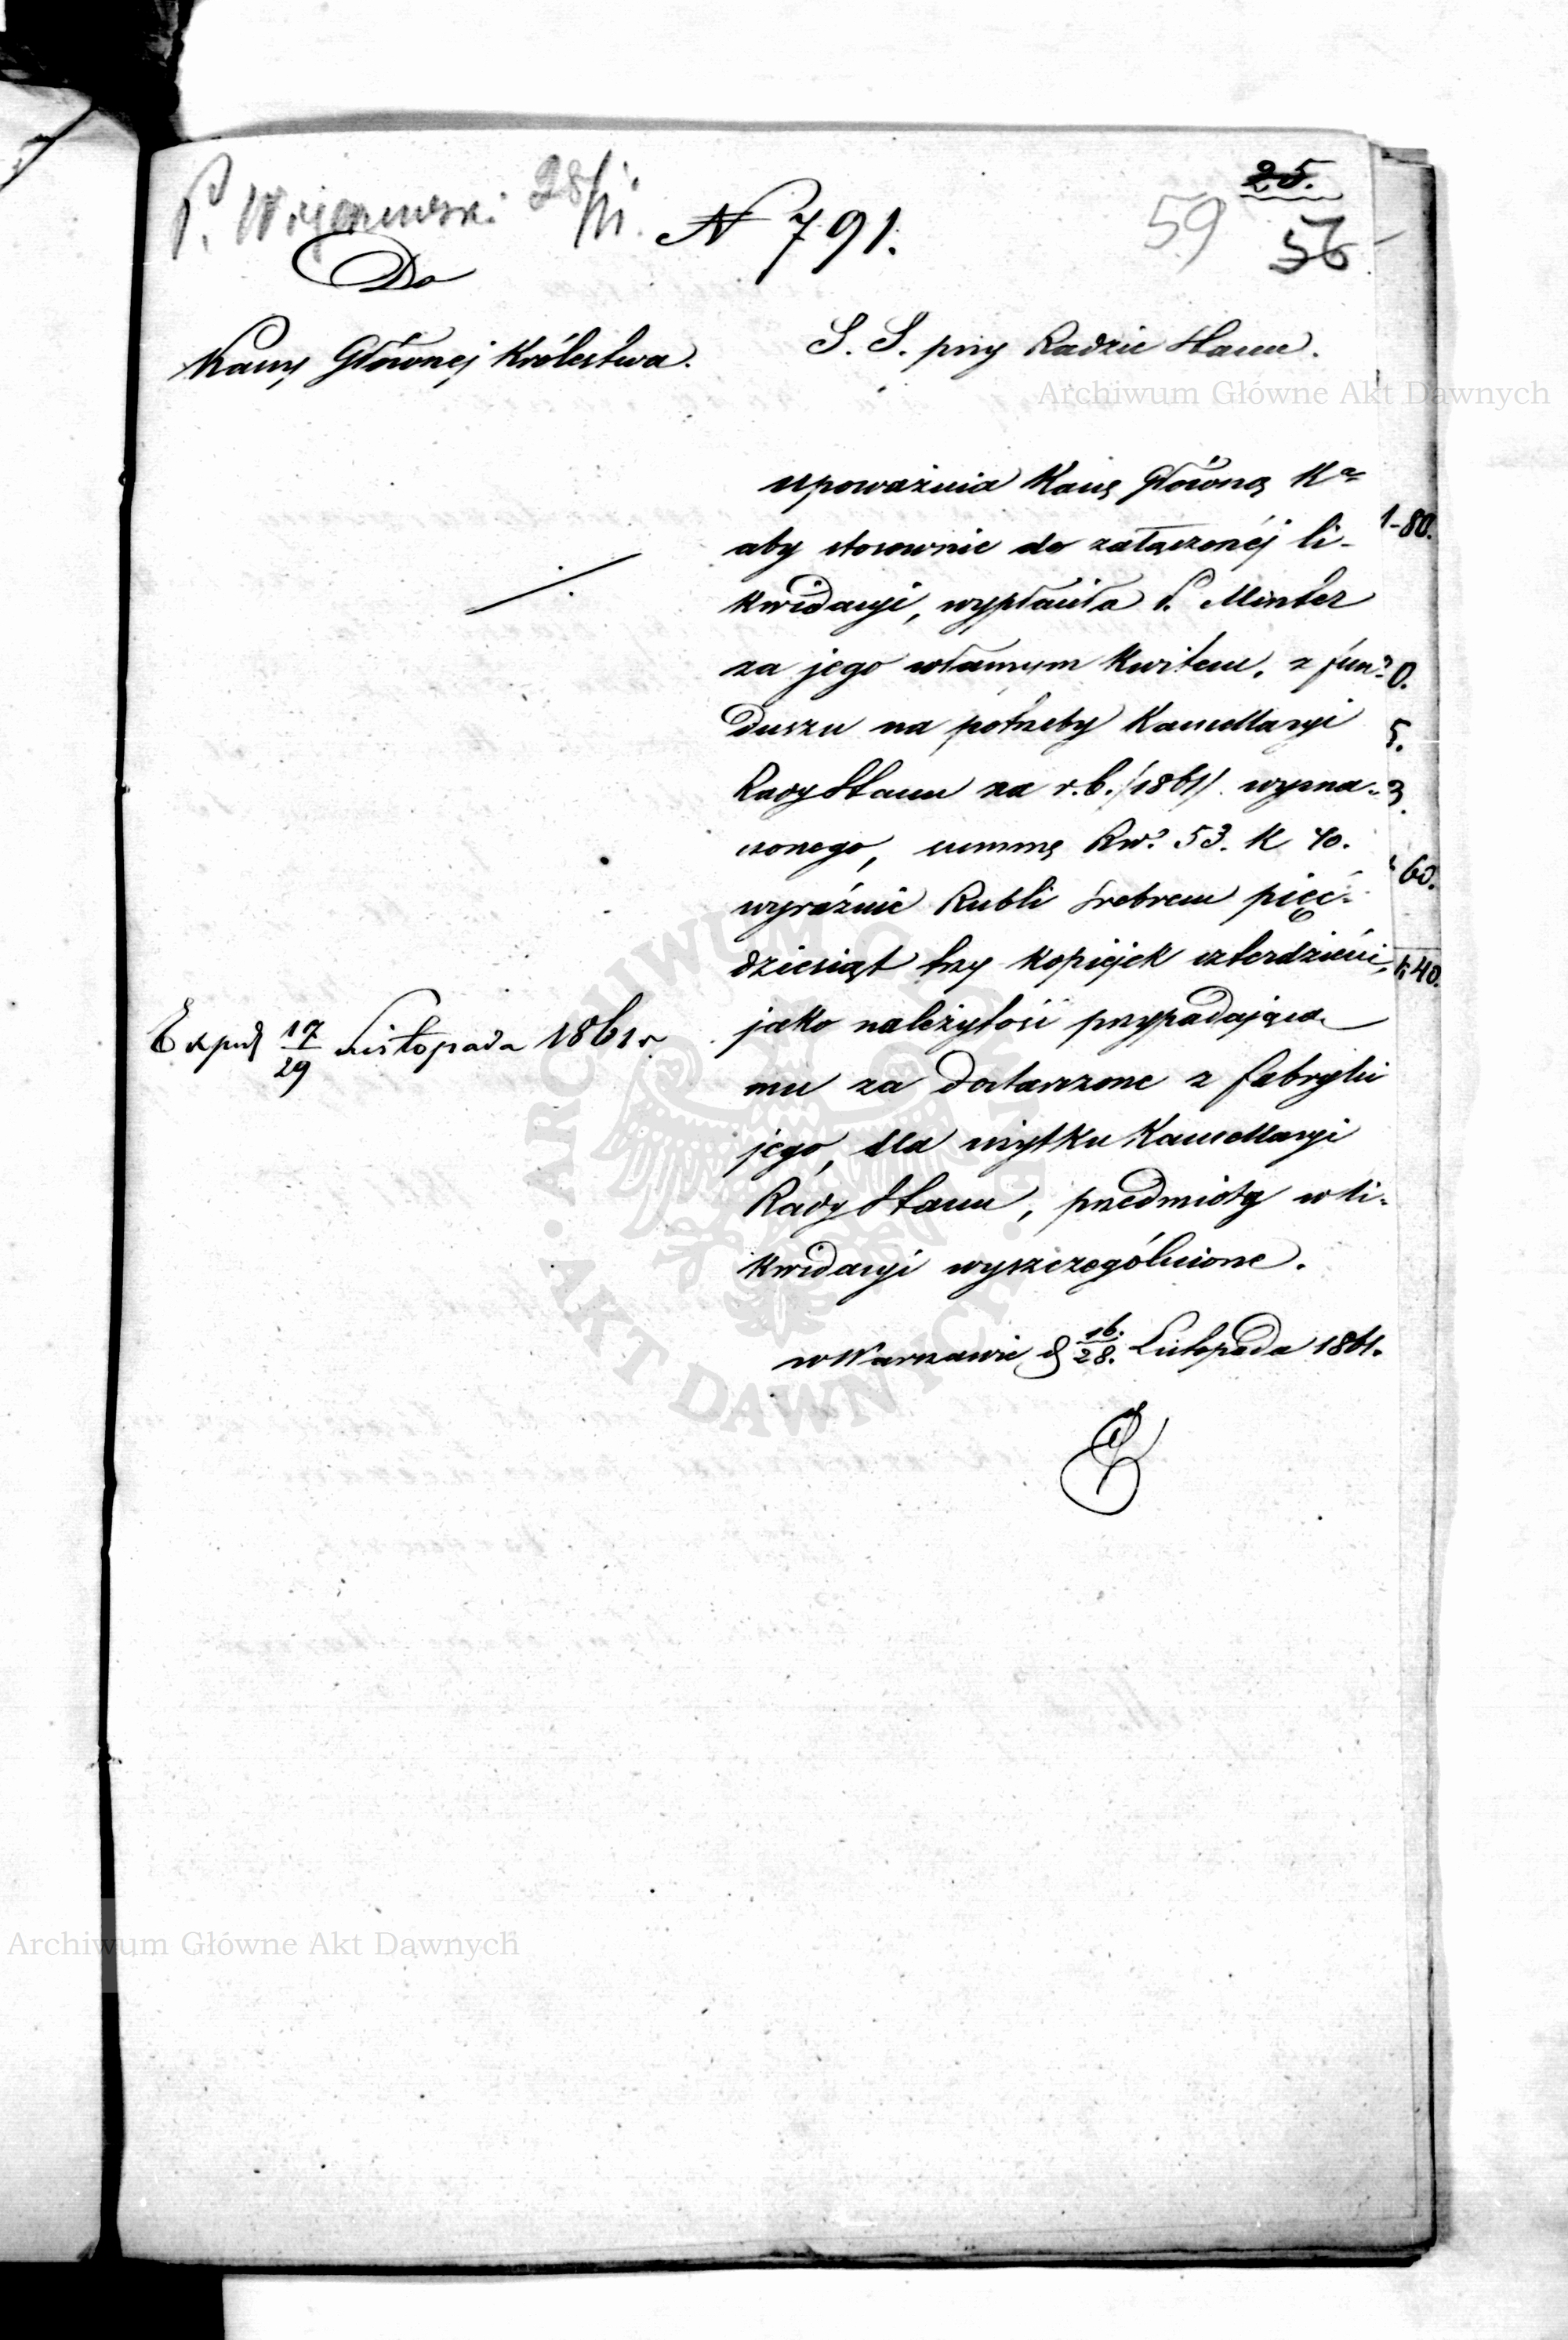 P. 28/11.
N 791.
25.
59 56
Do
Kassy Głównej Królestwa.
S. S. przy Radzie Stanu.
Archiwum Główne Akt Dawnych
upoważnia Kassę Główną Ka
1-80.
aby stosownie do załączonéj li-
kwidacyi, wypłaciła P. Minter
za jego własnym kwitem, z fun-
0.
duszu na potrzeby Kancellaryi
5.
Rady Stanu na r.b. /1861/. wyzna-
3.
czonego, summę Rs. 53. K 40.
60.
wyraźnie Rubli srebrem pięć-
dziesiąt trzy kopiejek czterdzieści,
40.
jako należytość przypadającą
Exped 17/29 Listopada 1861 r.
mu za dostarczone z fabryki
jego, dla użytku Kancellaryi
Rady Stanu, przedmioty w li-
kwidacyi wyszczególnione.
w Warszawie d 16./28. Listopada 1861.
ARCHIWUM GŁÓWNE AKT DAWNYCH
Archiwum Główne Akt Dawnych